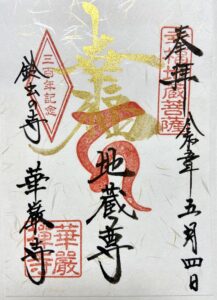 奉拝
令和七年五月四日
幸福地蔵菩薩
幸福
地蔵尊
三百年記念
鈴虫の寺
華厳寺
華厳禅寺